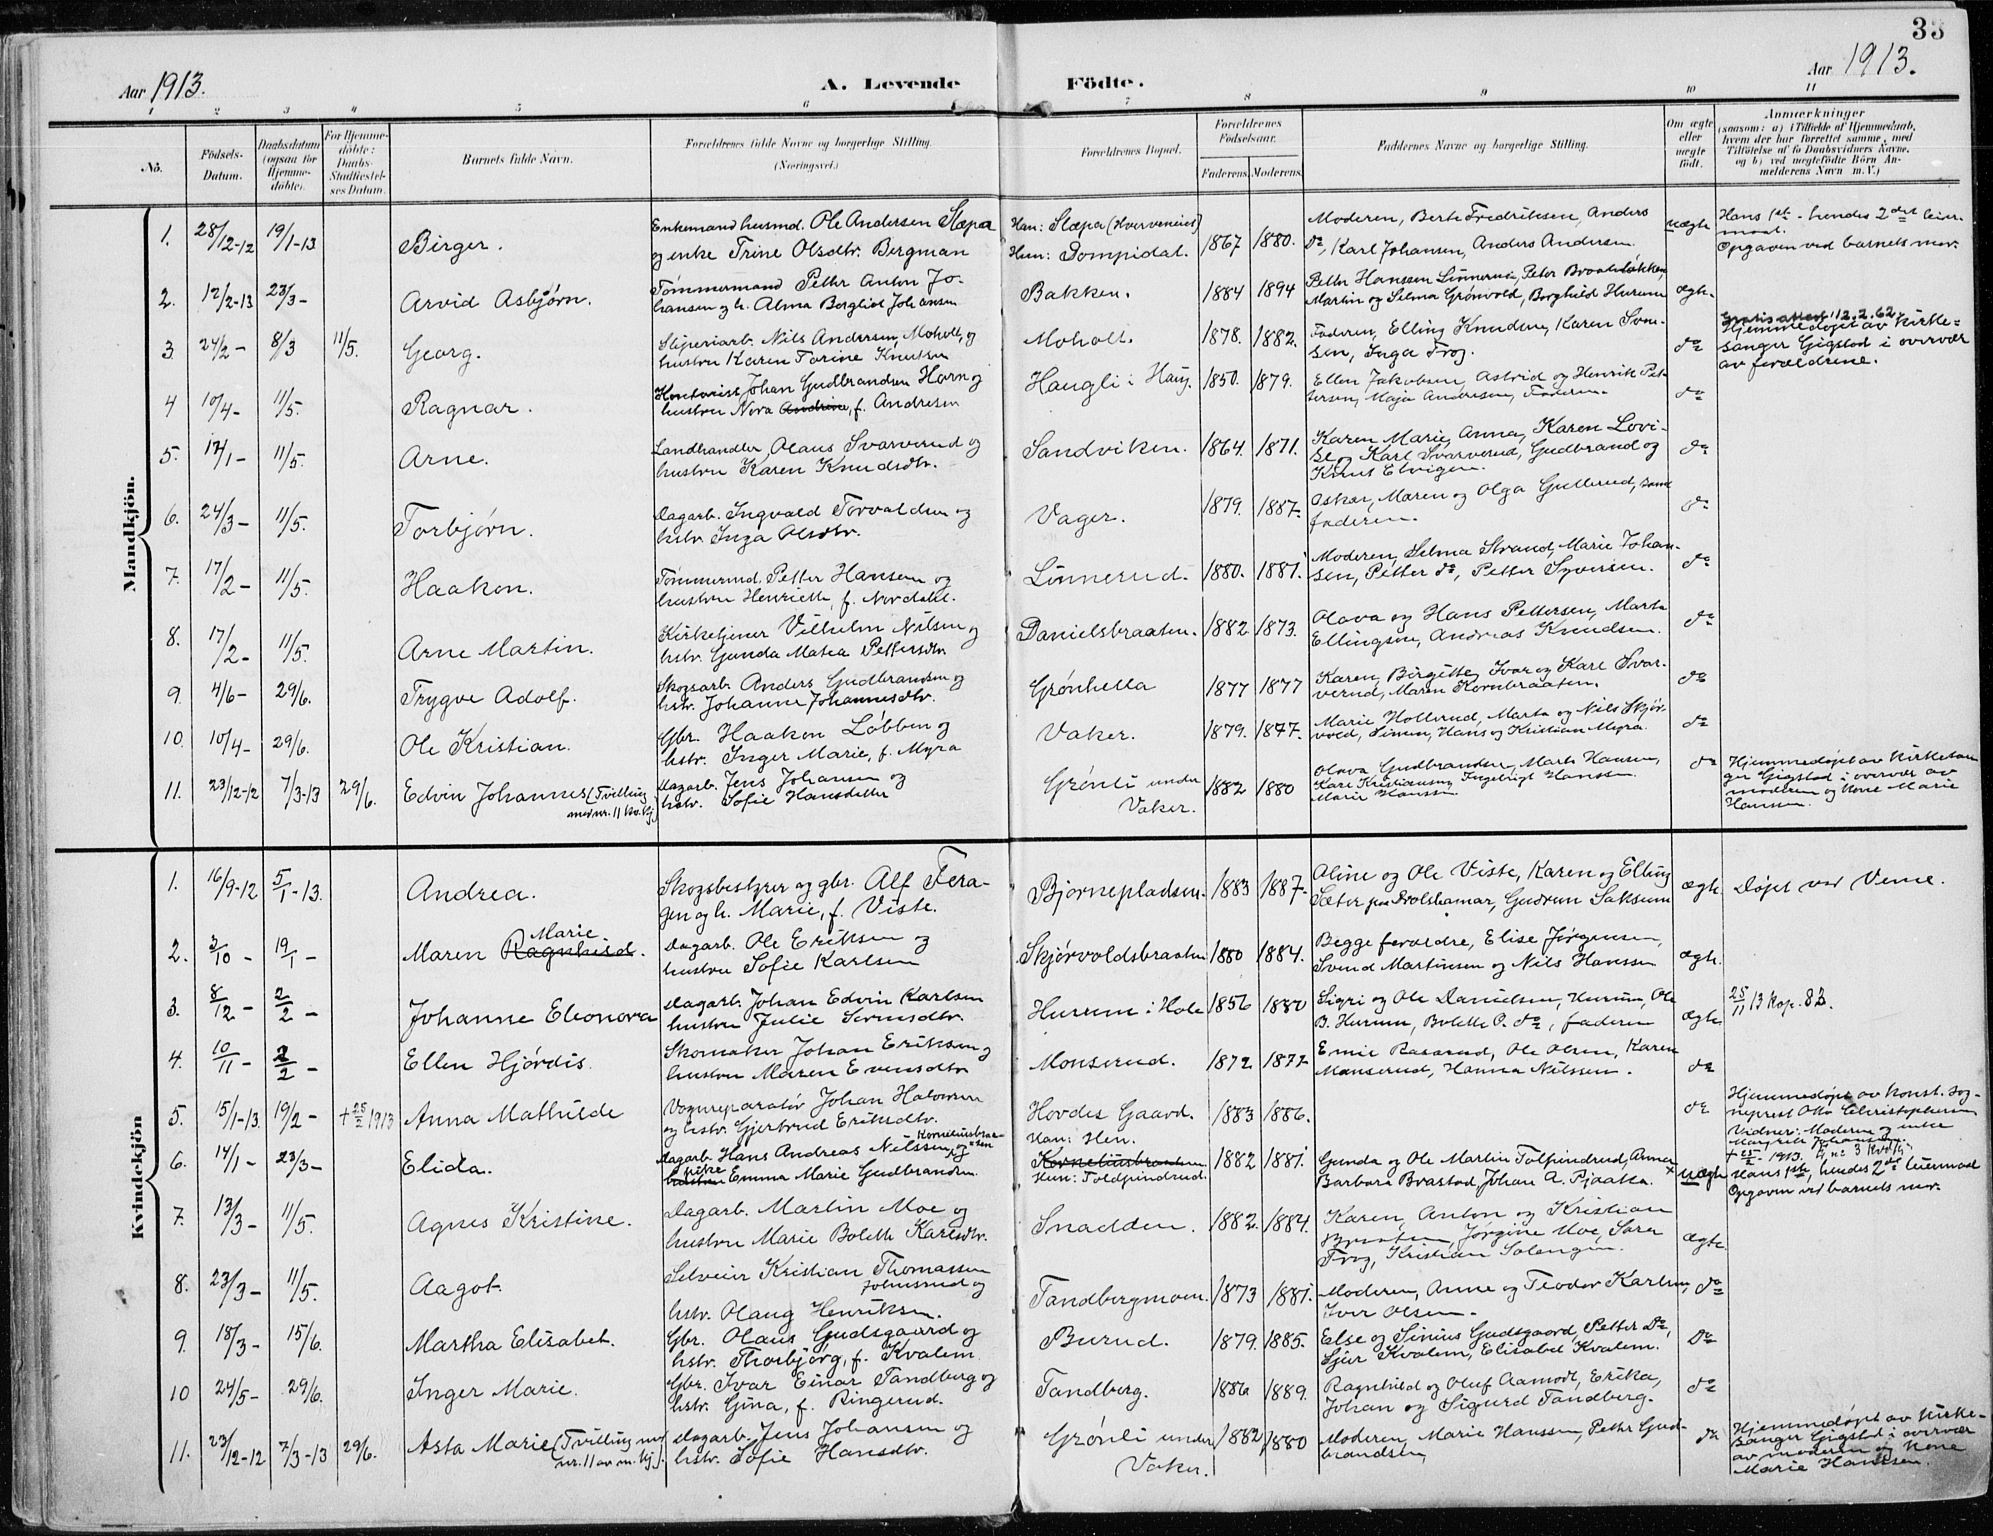 33
Aar 1913.
A. Levende
Födte.
Aar 1913.
1 2 3 4 5 6 7 8 9 10 11
No.
Födsels-
Datum.
Daabsdatum
(ogsaa for
Hjemme-
döbte).
For Hjemme-
döbte:
Daabs-
Stadfæstel-
ses Datum.
Barnets fulde Navn.
Forældrenes fulde Navne og borgerlige Stilling.
(Næringsvei.)
Forældrenes Bopæl.
Forældrenes
Födselsaar.
Faderens. Moderens.
Faddernes Navne og borgerlige Stilling.
Om ægte
eller
uægte
födt.
Anmærkninger
(saasom: a) i Tilfælde af Hjemmedaab,
hvem der har forrettet samme, med
Tilföielse af to Daabsvidners Navne,
og b) ved uægtefödte Börn An-
melderens Navn m. V.)
Mandkjön.
1. 28/12-12 19/1-13 Birger.
Enkemand husmd. Ole Andersen Slæpa
og enke Trine Olsdtr. Bergman
Han: Slæpa (Hverveneiet)
Hun: Dompidal. 1867 1880.
Moderen, Berte Fredriksen, Anders
do, Karl Johansen, Anders Andersen.
uægte
Hans 1ste - hendes 2det leier-
maal.
Opgaven ved barnets mor.
2. 12/2-13 23/3- Arvid Asbjørn.
Tømmermand Petter Anton Jo-
hansen og h. Alma Borghild Johansen
Bakken. 1884 1894
Petter Hanssen Linnerud, Peter Braatebakken
Martin og Selma Grønvold, Borghild Hurum
ægte.
3. 24/2- 8/3 11/5. Georg.
Sliperiarb. Nils Andersen Moholt, og
hustru Karen Torine Knutsen
Moholt. 1878. 1882.
Faderen, Elling Knudsen, Karen Sven-
sen, Inga Frog.
do
Gratis attest 12.2.62
Hjemmedøpt av Kirke-
sanger Gigstad i overvær
av forældrene.
4 10/4- 11/5. Ragnar.
Kontorist Johan Gudbrandsen Harn og
hustru Nora Andrine, f. Andresen
Haugli i Haug. 1850. 1879.
Ellen Jakobsen, Astrid og Henrik Pet-
tersen, Maja Andresen, Faderen.
do
5. 17/1- 11/5. Arne.
Landhandler Olaus Svarverud og
hustru Karen Knudsdtr.
Sandviken. 1864. 1871.
Karen Marie, Anna, Karen Lovi-
se og Karl Svarverud, Gudbrand og
Knut Elvigen.
do
6. 24/3- 11/5. Torbjørn.
Dagarb. Ingvald Torvaldsen og
hstr. Inga Olsdtr.
Vager. 1879. 1887.
Oskar, Maren og Olga Gullerud, samt
faderen.
do
7. 17/2- 11/5. Haakon.
Tømmermd. Petter Hansen og
hustru Henriette, f. Nordahl.
Linnerud. 1880. 1881.
Moderen, Selma Strand, Marie Johan-
sen, Petter do, Petter Syversen.
do
8. 17/2- 11/5. Arne Martin.
Kirketjener Vilhelm Nilsen og
hstr. Gunda Matea Pettersdtr.
Danielsbraaten. 1882 1873.
Olava og Hans Pettersen, Marta
Ellingsen, Andreas Knudsen.
do
9. 4/6- 29/6. Trygve Adolf.
Skogsarb. Anders Gudbrandsen og
hstr. Johanne Johannesdtr.
Grønhella 1877 1877
Karen, Birgitte, Ivar og Karl Svar-
verud, Maren Kornbraaten.
do
10. 10/4- 29/6. Ole Kristian.
Gbr. Haakon Løbben og
hstr. Inger Marie, f. Myra
Vaker. 1879. 1877.
Marie Hollerud, Marta og Nils Skjør-
vold, Simen, Hans og Kristian Myra.
do
11. 23/12-12 7/3-13 29/6. Edvin Johannes (Tvilling
med nr. 11 kv. kj.)
Dagarb. Jens Johansen og
hstr. Sofie Hansdatter
Grønli under
Vaker. 1882 1880
Olava Gudbrandsen, Marta Hansen,
Karl Kristiansen, Ingebrigt Hanssen.
Marie Hanssen
do
Hjemmedøpt av Kirkesan-
ger Gigstad i overvær av
moderen og kone Marie
Hansen.
Kvindekjön
1. 16/9-12 5/1-13. Andrea.
Skogsbestyrer og gbr. Alf Fera-
gen og h. Marie, f. Viste.
Bjørnepladsen. 1883 1887.
Aline og Ole Viste, Karen og Elling
Sæter paa Trolshamar, Gudrun Saksum
ægte. Døpt ved Veme.
2. 3/10- 19/1- Maren Ragnhild. Marie
Dagarb. Ole Eriksen og
hustru Sofie Karlsen
Skjørvoldsbraaten 1880 1884.
Begge forældre, Elise Jørgensen,
Svend Martinsen og Nils Hanssen
ægte.
3. 8/12- 2/2- Johanne Eleonora
Dagarb. Johan Edvin Karlsen
hustru Julie Sörensdtr.
Hurum i Hole 1856 1880
Sigri og Ole Danielsen, Hurum, Ole
B. Hurum, Bolette P. do, faderen
ægte. 25/11 13 kop. 82.
4. 10/11- 2/2- Ellen Hjördis.
Skomaker Johan Eriksen og
hustru Maren Evensdtr.
Monserud. 1872 1877
Emil Rasarud, Ole Olsen, Karen
Monserud, Hanna Nilssen.
do
5. 15/1-13. 19/2- + 25/2 1913 Anna Mathilde
Vognreparatör Johan Halvorsen
og hstr. Gjertrud Eriksdtr.
Hovdes Gaard. 1883 1886.
do
Hjemmedøpt av konst. sog-
neprest Otto Christophersen
Vidner: Moderen og enke
+ 25/2 1913.
6. 14/1- 23/3- Elida.
Dagarb. Hans Andreas Nilssen, Korneliusbraa-
ten og
hustru enke Emma Marie Gudbrandsen.
Han: Hen.
Korneliusbraaten
Hun: Foldpindrud. 1882 1881.
Gunda og Ole Martin Tolpinrud, Anna
Barbara Brastad, Johan A. Pjaaka.
uægte
Hans 1ste, hendes 2det leiermaal
Opgaven ved barnets mor.
7. 13/3- 11/5. Agnes Kristine.
Dagarb. Martin Moe og
hustru Marie Bolette Karlsdtr.
Snadden. 1882. 1884.
Karen, Anton og Kristian
Braaten, Jørgine Moe, Sara
Frog, Kristian Solangen.
ægte.
8. 23/3- 11/5. Aagot.
Selveier Kristian Thomassen
Johnsrud og
hstr. Olaug Henriksen.
Tandbergmoen. 1873 1881.
Moderen, Anne og Teodor Karlsen,
Iver Olsen.
do
9. 18/3- 15/6. Martha Elisabet.
Gbr. Olaus Gudsgaard og
hstr. Thorbjørg, f. Kvalem
Burud. 1879. 1885.
Else og Sinius Gudsgaard, Petter do,
Sjur Kvalem, Elisabet Kvalem.
do
10 24/5- 29/6. Inger Marie.
Gbr. Ivar Einar Tandberg og
hstr. Gina, f. Ringerud.
Tandberg. 1886 1889.
Ragnhild og Oluf Aamodt, Erika,
Johan og Sigurd Tandberg.
do
11. 23/12-12 7/3-13 29/6. Asta Marie (Tvilling med
nr. 11 av m. kj.).
Dagarb. Jens Johansen og
hstr. Sofie Hansdtr.
Grønli under
Vaker. 1882 1880
Moderen, Marie Hanssen, Petter Gud-
brandsen
do
Hjemmedøpt av Kirke-
sanger Gigstad i overvær
av moderen og kone
Marie Hanssen.